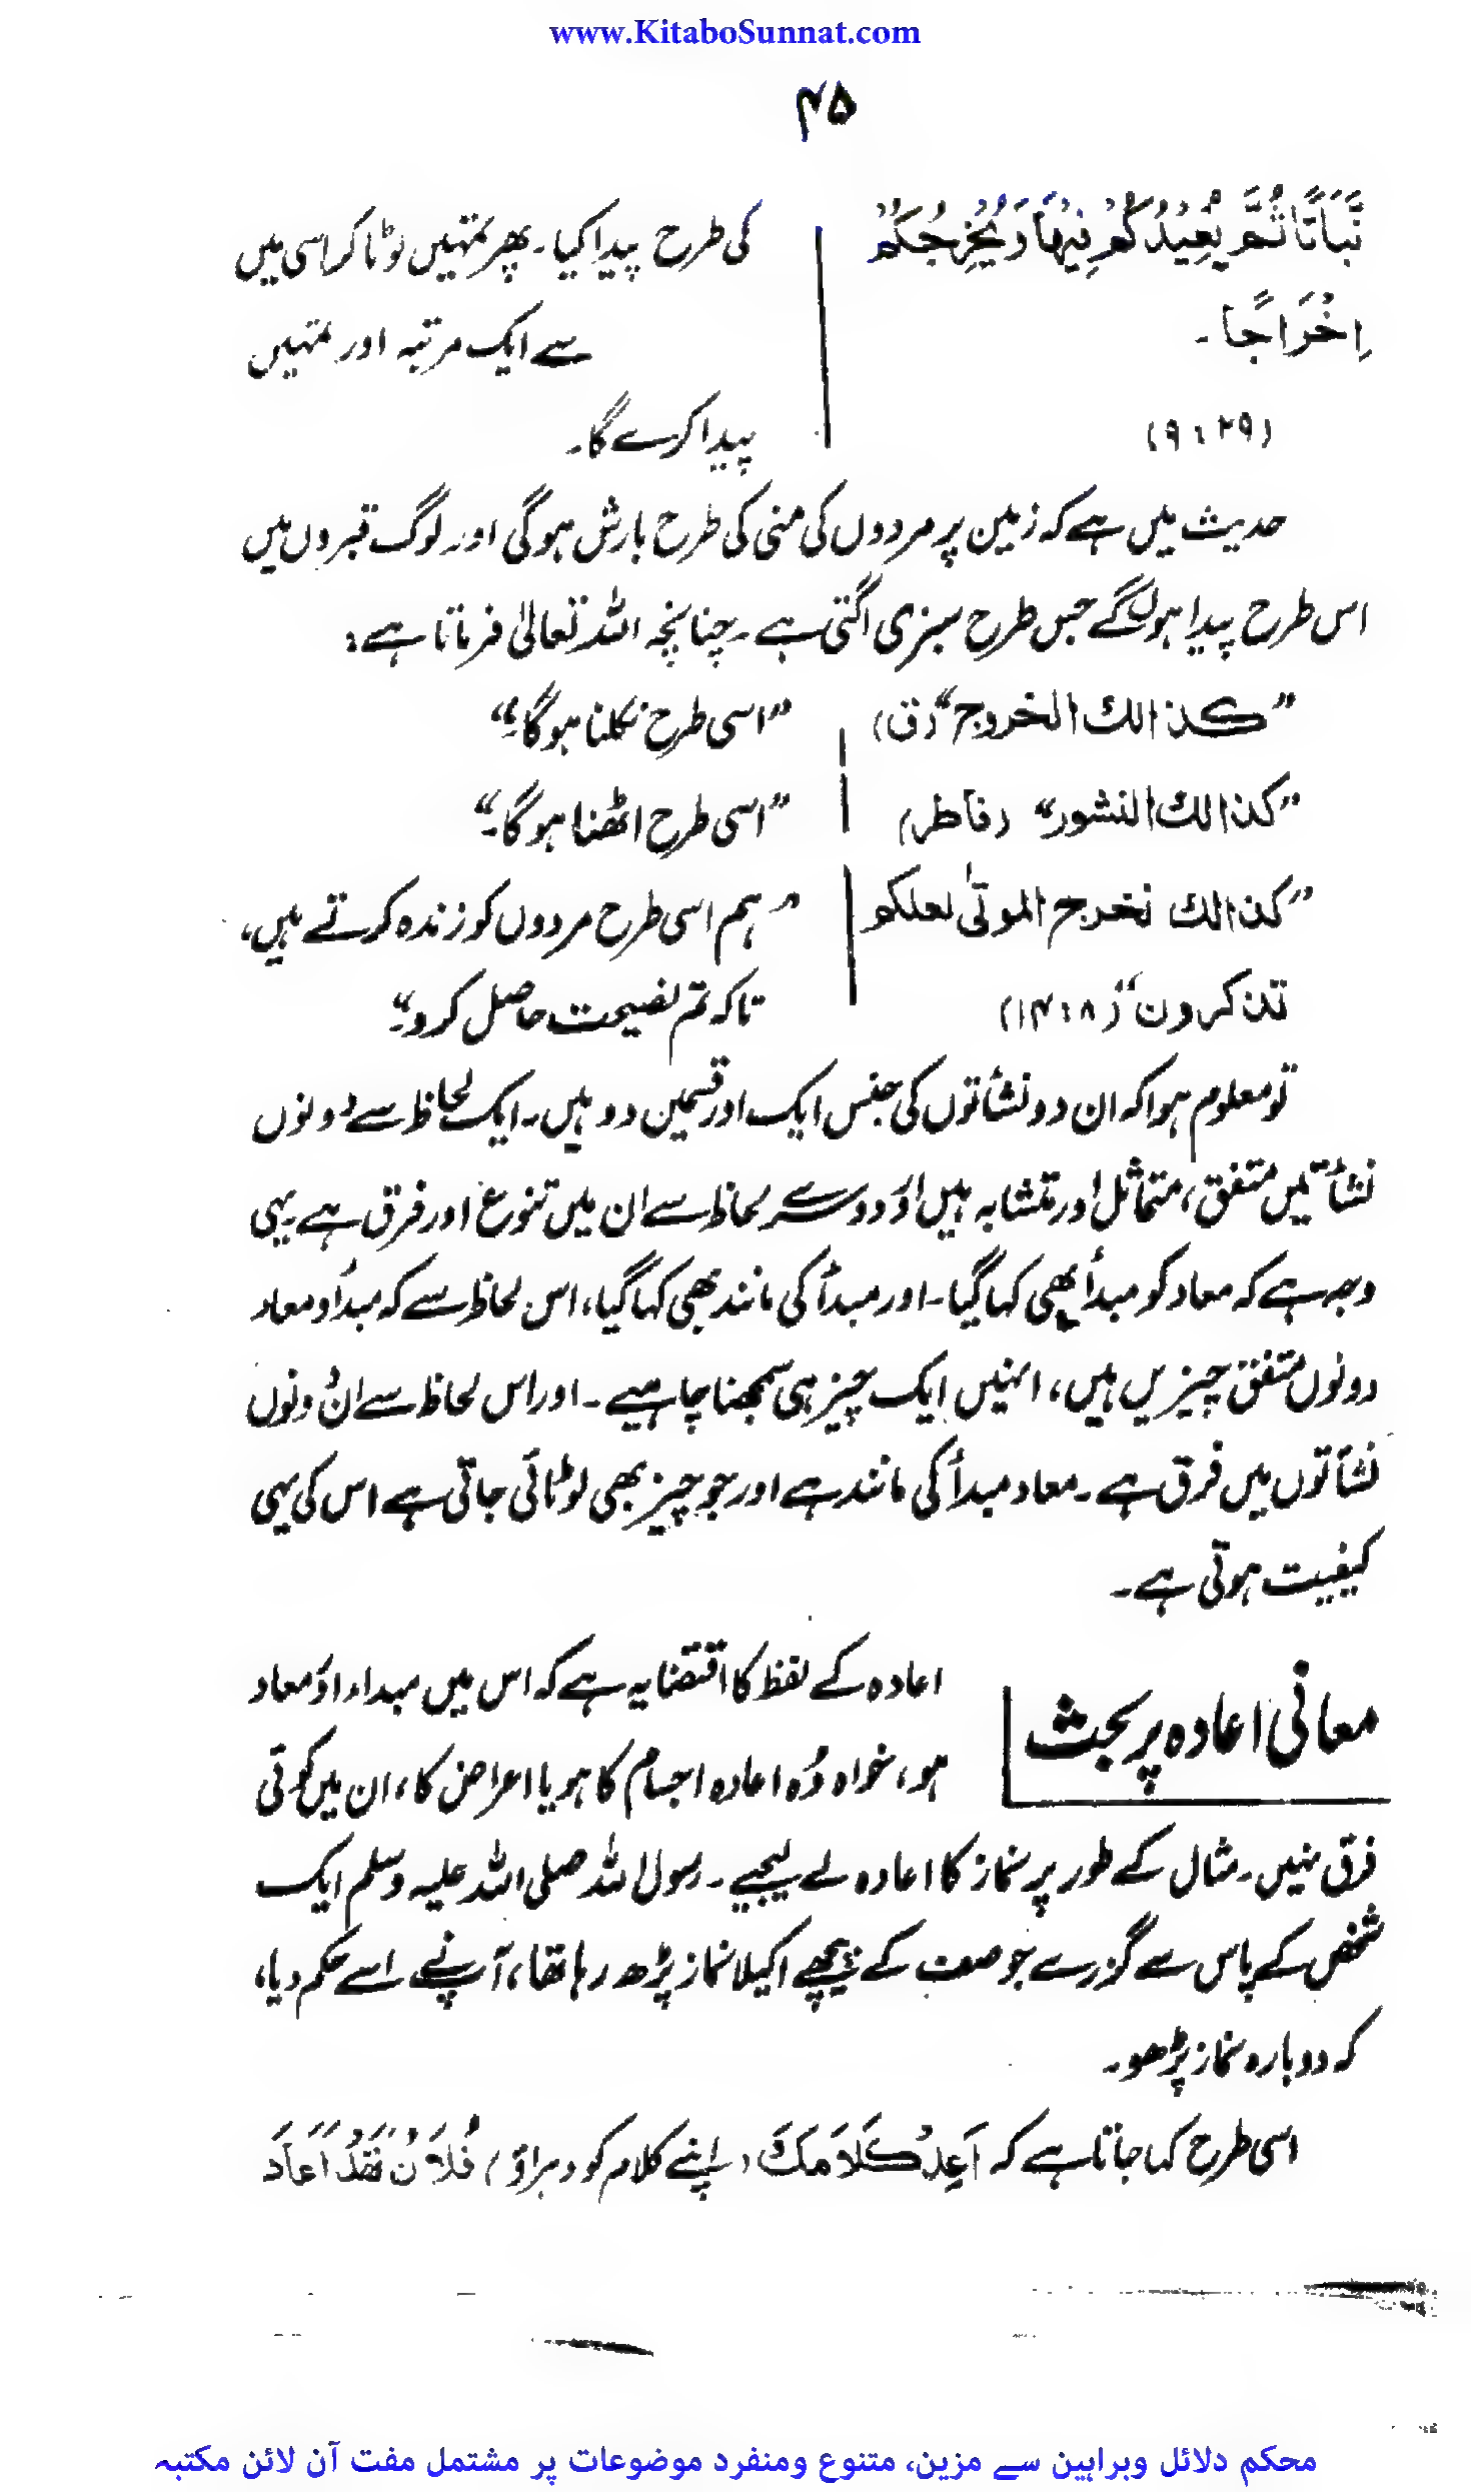 www.KitaboSunnat.com
۴۵
نَّبَاتًا ثُمَّ يُعِيْدُكُمْ فِيْهَا وَيُخْرِجُكُمْ | کی طرح پیدا کیا۔ پھر تمہیں لوٹا کر اسی میں
اِخْرَاجًا۔ | سے ایک مرتبہ اور تمہیں
(۲۹ : ۹) | پیدا کرے گا۔
حدیث میں ہے کہ زمین پر مردوں کی منی کی طرح بارش ہوگی اور لوگ قبروں میں
اس طرح پیدا ہوں گے جس طرح سبزی اگتی ہے۔ چنانچہ اللہ تعالیٰ فرماتا ہے:
”کذالك الخروج“ (ق) | ”اسی طرح نکلنا ہوگا۔“
”کذالك النشور“ (فاطر) | ”اسی طرح اٹھنا ہوگا۔“
”کذالك نخرج الموتٰی لعلکم | ”ہم اسی طرح مردوں کو زندہ کرتے ہیں،
تذکرون“ (۸ : ۱۴) | تاکہ تم نصیحت حاصل کرو۔“
تو معلوم ہوا کہ ان دو نشأتوں کی جنس ایک اور قسمیں دو ہیں۔ ایک لحاظ سے دونوں
نشأتیں متفق، متماثل اور متشابہ ہیں اور دوسرے لحاظ سے ان میں تنوع اور فرق ہے۔ یہی
وجہ ہے کہ معاد کو مبدأ بھی کہا گیا۔ اور مبدأ کی مانند بھی کہا گیا، اس لحاظ سے کہ مبدأ و معاد
دونوں متفق چیزیں ہیں، انہیں ایک چیز ہی سمجھنا چاہیے۔ اور اس لحاظ سے ان دونوں
نشأتوں میں فرق ہے۔ معاد مبدأ کی مانند ہے اور جو چیز بھی لوٹائی جاتی ہے اس کی یہی
کیفیت ہوتی ہے۔
معانی اعادہ پر بحث
اعادہ کے لفظ کا اقتضا یہ ہے کہ اس میں مبداء اور معاد
ہو، خواہ وُہ اعادہ اجسام کا ہو یا اعراض کا، ان میں کوئی
فرق نہیں۔ مثال کے طور پر نماز کا اعادہ لے لیجیے۔ رسول اللہ صلی اللہ علیہ وسلم ایک
شخص کے پاس سے گزرے جو صف کے پیچھے اکیلا نماز پڑھ رہا تھا، آپ نے اسے حکم دیا،
کہ دوبارہ نماز پڑھو۔
اسی طرح کہا جاتا ہے کہ اَعِدْ كَلَامَكَ (اپنے کلام کو دہراؤ) فُلَانٌ فَقَدْ اَعَادَ
محکم دلائل وبراہین سے مزین، متنوع ومنفرد موضوعات پر مشتمل مفت آن لائن مکتبہ